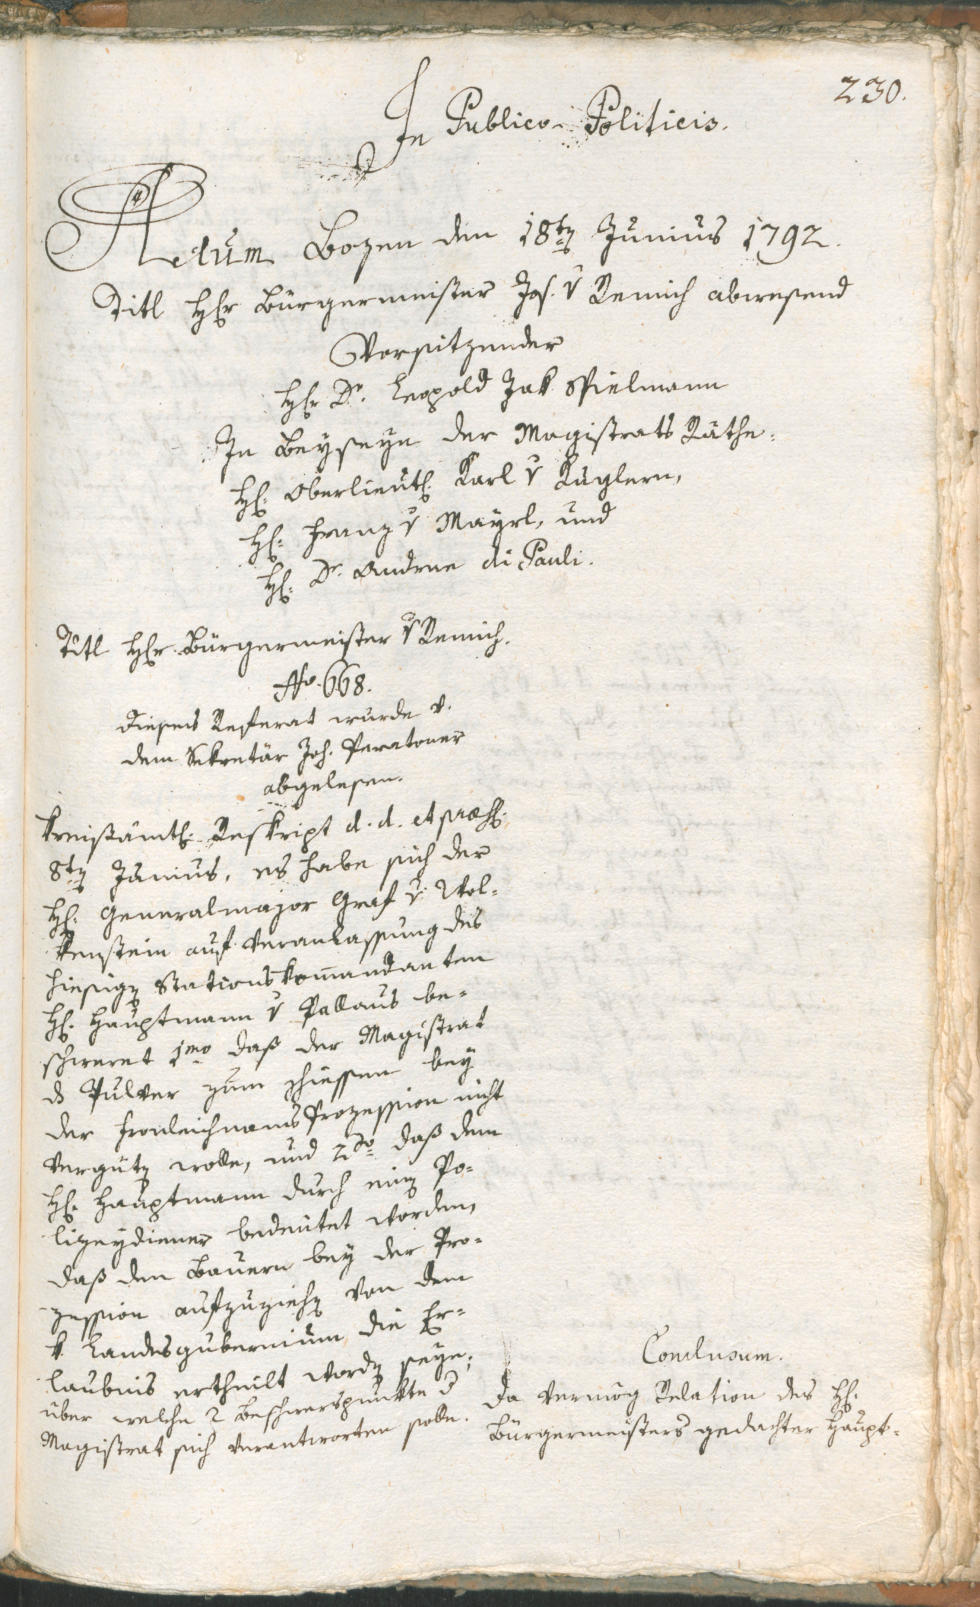 230.
In Publico-Politicis.
Actum Bozen den 18tn Junius 1792.
Titl HHr Bürgermeister Jos. v Remich abwesend
Vorsitzender
HHr Dr. Leopold Jak Spielmann
In Beyseyn der Magistrats Räthe.
H: Oberlieut: Karl v Kuglern,
H: Franz v Mayrl, und
H: Dr. Andree di Pauli.
Titl HHr. Bürgermeister v Remich.
No. 668.
Dieses Referat wurde v.
dem Sekretär Joh. Peratoner
abgelesen.
Kreisämtl: Reskript d. d. et præs:
8tn Junius, es habe sich der
H: Generalmajor Graf v Wol-
kenstein auf Veranlassung des
hiesign Stationskommandanten
H: Hauptmann v Pallaus be-
schweret 1mo daß der Magistrat
ds Pulver zum schiessen bey
der Fronleichnams Prozession nicht
vergütn wolle, und 2do daß dem
H: Hauptmann durch einn Po-
lizeydiener bedeutet worden,
daß den Bauern bey der Pro-
zession aufzuziehn von dem
k. Landesgubernium die Er-
laubnis ertheilt wordn seye;
über welche 2 Beschwerspunkte d
Magistrat sich verantworten solle.
Conclusum.
Da vermög Relation des H:
Bürgermeisters gedachter Haupt-